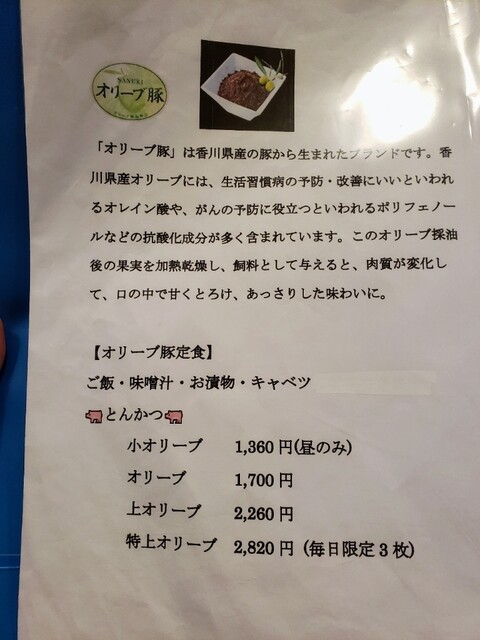 SANUKI
オリーブ豚
「オリーブ豚」は香川県産の豚から生まれたブランドです。香
川県産オリーブには、生活習慣病の予防・改善にいいといわれ
るオレイン酸や、がんの予防に役立つといわれるポリフェノー
ルなどの抗酸化成分が多く含まれています。このオリーブ採油
後の果実を加熱乾燥し、飼料として与えると、肉質が変化し
て、口の中で甘くとろけ、あっさりした味わいに。
【オリーブ豚定食】
ご飯・味噌汁・お漬物・キャベツ
とんかつ
小オリーブ 1,360円(昼のみ)
オリーブ 1,700円
上オリーブ 2,260円
特上オリーブ 2,820円 (毎日限定3枚)